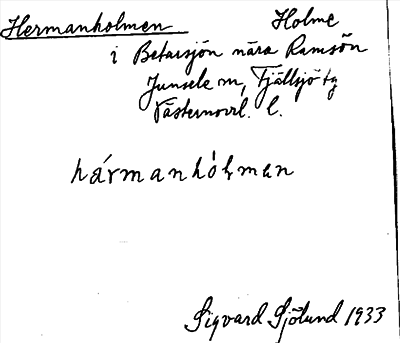 Hermanholmen Holme
i Betarsjön nära Ramsön
Junsele sn, Fjällsjö tg
Västernorrl. l.
hármanhólman
Sigvard Sjölund 1933